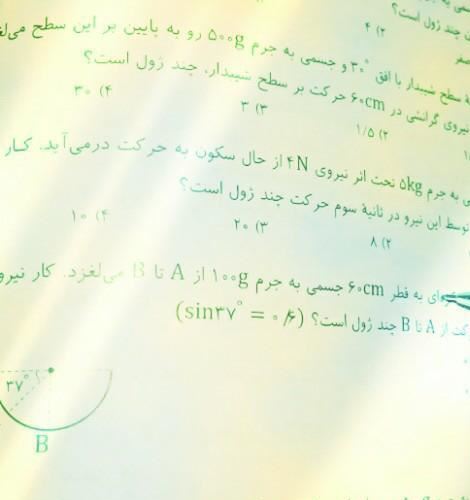 چند ژول است؟
۲) ۴
صفر
سطح شیبدار با افق ۳۰° و جسمی به جرم ۵۰۰g رو به پایین بر این سطح
نیروی گرانشی در ۶۰cm حرکت بر سطح شیبدار، چند ژول است؟
۲) ۱/۵
۳) ۳
۴) ۳۰
به جرم ۵kg تحت اثر نیروی ۴N از حال سکون به حرکت درمی‌آید. کار
توسط این نیرو در ثانیهٔ سوم حرکت چند ژول است؟
۲) ۸
۳) ۲۰
۴) ۱۰
به قطر ۶۰cm جسمی به جرم ۱۰۰g از A تا B می‌لغزد. کار نیروی
از A تا B چند ژول است؟ (sin۳۷° = ۰/۶)
۳۷°
B